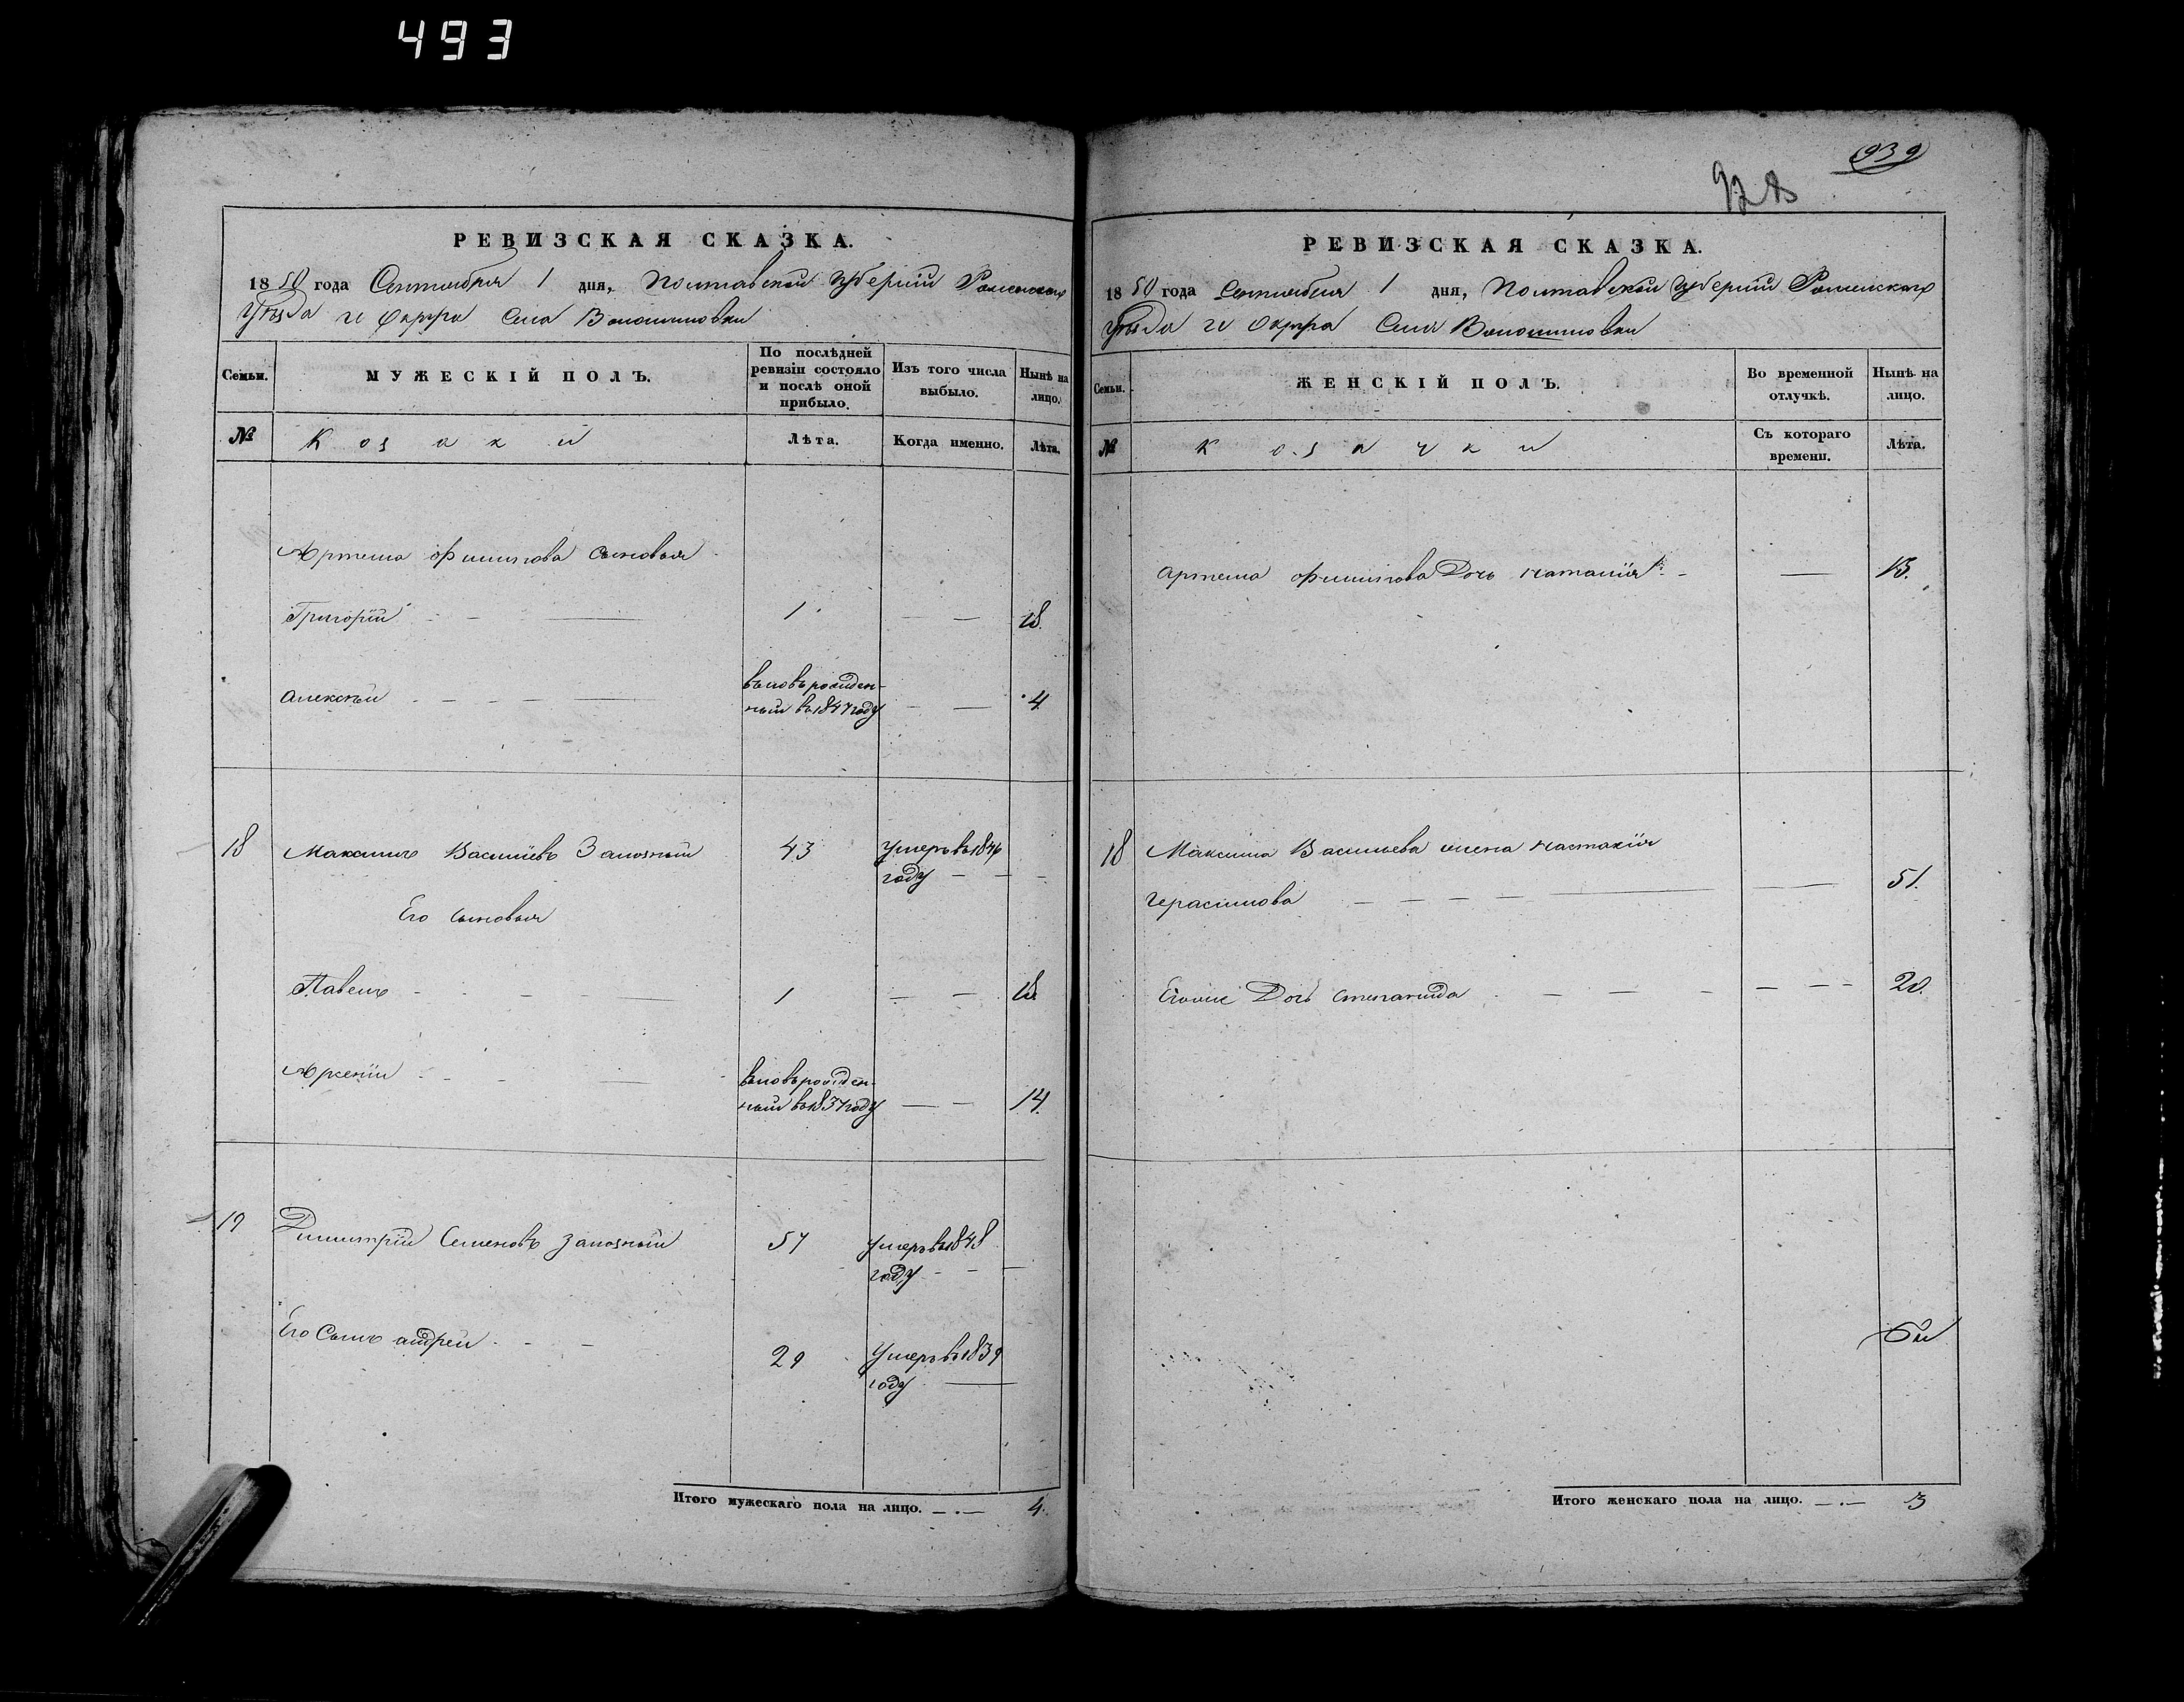 493
939
РЕВИЗСКАЯ СКАЗКА.
1850 года Сентября 1 дня, Полтавской Губернiи Роменскаго
Уѣзда и Округа Села Волошиновки
Семьи.
МУЖЕСКIЙ ПОЛЪ.
По послѣдней ревизiи состояло и послѣ оной прибыло.
Изъ того числа выбыло.
Нынѣ на лицо.
№
Козаки
Лѣта.
Когда именно.
Лѣта.
Артема Филипова сыновья
Григорiй 1 18.
Алексѣй вновь рожден-
ный въ 1847 году 4.
18 Максимъ Васильевъ Залозный 43 Умеръ въ 1846
году
Его сыновья
Павелъ 1 18.
Арсенiй вновь рожден-
ный въ 1837 году 14.
19 Димитрiй Семеновъ Залозный 57 Умеръ въ 1848
году
Его Сынъ Андрей 29 Умеръ въ 1839
году
Итого мужескаго пола на лицо. 4.
РЕВИЗСКАЯ СКАЗКА.
1850 года Сентября 1 дня, Полтавской Губернiи Роменскаго
Уѣзда и Округа Села Волошиновки
Семьи.
ЖЕНСКIЙ ПОЛЪ.
Во временной отлучкѣ.
Нынѣ на лицо.
№
Козачки
Съ котораго времени.
Лѣта.
Артема Филипова Дочь Наталiя 13.
18 Максима Васильева жена Настасiя
Герасимова 51.
Егоже Дочь Степанида 20.
Итого женскаго пола на лицо. 3